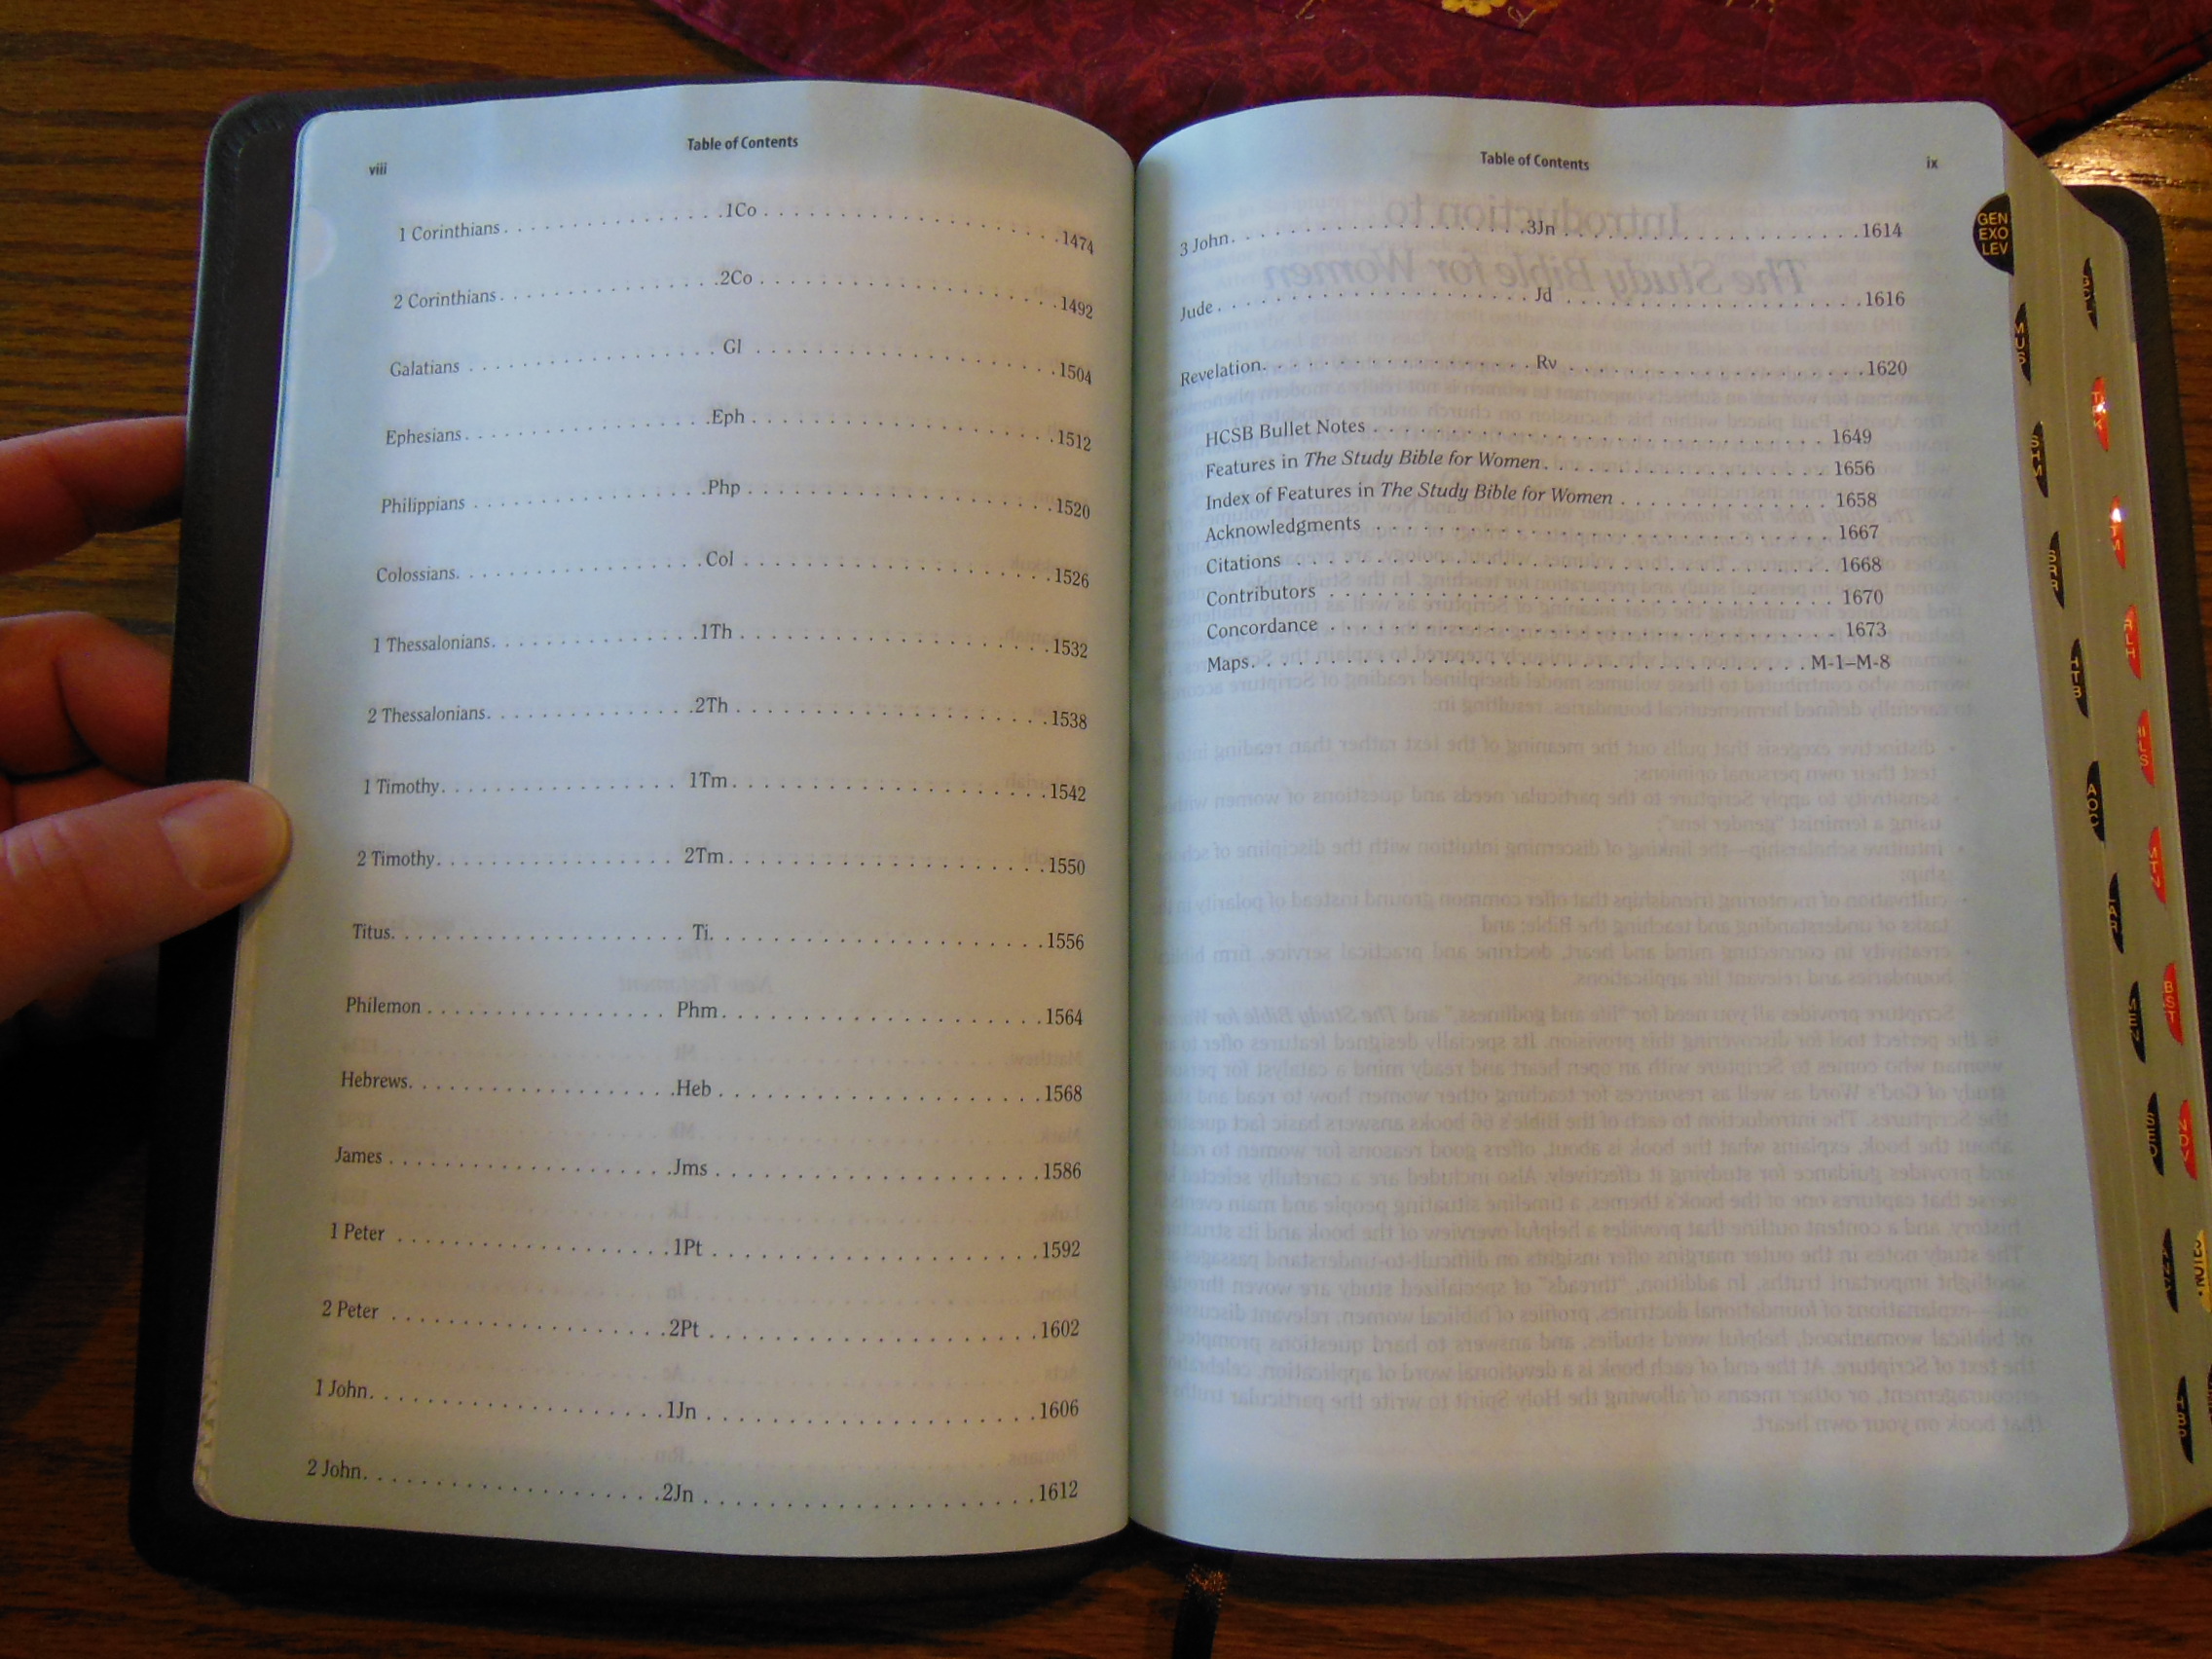 viii
Table of Contents
1 Corinthians . . . . . . . . . . . . . . . . .1Co . . . . . . . . . . . . . . . . . . . . . .1474
2 Corinthians . . . . . . . . . . . . . . . . .2Co . . . . . . . . . . . . . . . . . . . . . .1492
Galatians . . . . . . . . . . . . . . . . . . . . Gl . . . . . . . . . . . . . . . . . . . . . .1504
Ephesians . . . . . . . . . . . . . . . . . . .Eph . . . . . . . . . . . . . . . . . . . . . .1512
Philippians . . . . . . . . . . . . . . . . . .Php . . . . . . . . . . . . . . . . . . . . . .1520
Colossians. . . . . . . . . . . . . . . . . . . Col . . . . . . . . . . . . . . . . . . . . . .1526
1 Thessalonians. . . . . . . . . . . . . . . .1Th . . . . . . . . . . . . . . . . . . . . . .1532
2 Thessalonians. . . . . . . . . . . . . . . .2Th . . . . . . . . . . . . . . . . . . . . . .1538
1 Timothy. . . . . . . . . . . . . . . . . . . 1Tm. . . . . . . . . . . . . . . . . . . . . .1542
2 Timothy. . . . . . . . . . . . . . . . . . . 2Tm. . . . . . . . . . . . . . . . . . . . . .1550
Titus. . . . . . . . . . . . . . . . . . . . . . Ti. . . . . . . . . . . . . . . . . . . . . . .1556
Philemon . . . . . . . . . . . . . . . . . . Phm. . . . . . . . . . . . . . . . . . . . . .1564
Hebrews. . . . . . . . . . . . . . . . . . . .Heb . . . . . . . . . . . . . . . . . . . . . .1568
James . . . . . . . . . . . . . . . . . . . . .Jms . . . . . . . . . . . . . . . . . . . . . .1586
1 Peter . . . . . . . . . . . . . . . . . . . . .1Pt . . . . . . . . . . . . . . . . . . . . . .1592
2 Peter . . . . . . . . . . . . . . . . . . . . .2Pt . . . . . . . . . . . . . . . . . . . . . .1602
1 John. . . . . . . . . . . . . . . . . . . . . .1Jn . . . . . . . . . . . . . . . . . . . . . .1606
2 John. . . . . . . . . . . . . . . . . . . . . .2Jn . . . . . . . . . . . . . . . . . . . . . .1612
Table of Contents
ix
3 John. . . . . . . . . . . . . . . . . . . . . .3Jn . . . . . . . . . . . . . . . . . . . . .1614
Jude . . . . . . . . . . . . . . . . . . . . . . Jd . . . . . . . . . . . . . . . . . . . . .1616
Revelation. . . . . . . . . . . . . . . . . . . Rv . . . . . . . . . . . . . . . . . . . . .1620
HCSB Bullet Notes . . . . . . . . . . . . . . . . . . . . . . . . . . . . . . 1649
Features in The Study Bible for Women. . . . . . . . . . . . . . . . . . . 1656
Index of Features in The Study Bible for Women . . . . . . . . . . . . . . 1658
Acknowledgments . . . . . . . . . . . . . . . . . . . . . . . . . . . . . . 1667
Citations . . . . . . . . . . . . . . . . . . . . . . . . . . . . . . . . . . 1668
Contributors . . . . . . . . . . . . . . . . . . . . . . . . . . . . . . . . 1670
Concordance . . . . . . . . . . . . . . . . . . . . . . . . . . . . . . . . 1673
Maps. . . . . . . . . . . . . . . . . . . . . . . . . . . . . . . . . . . M-1–M-8
GEN
EXO
LEV